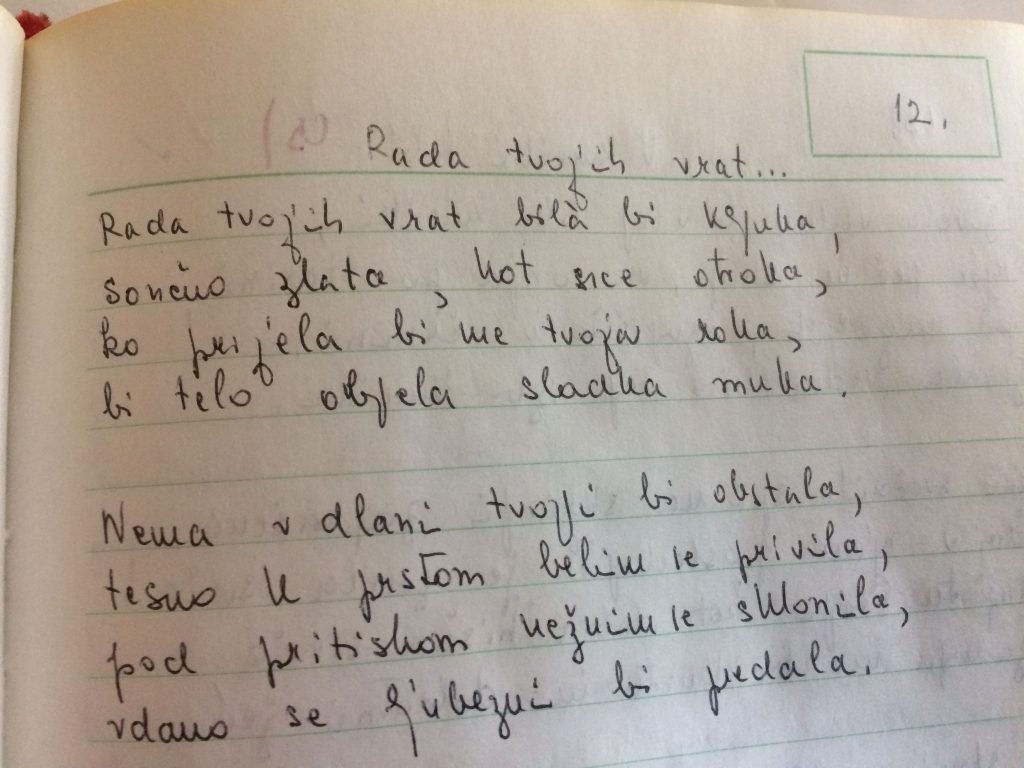 12.
Rada tvojih vrat...
Rada tvojih vrat bila bi kljuka,
sončno zlata, kot srce otroka,
ko prijela bi me tvoja roka,
bi telo objela sladka muka.
Nema v dlani tvoji bi obstala,
tesno k prstom belim se privila,
pod pritiskom nežnim se sklonila,
vdano se ljubezni bi predala.